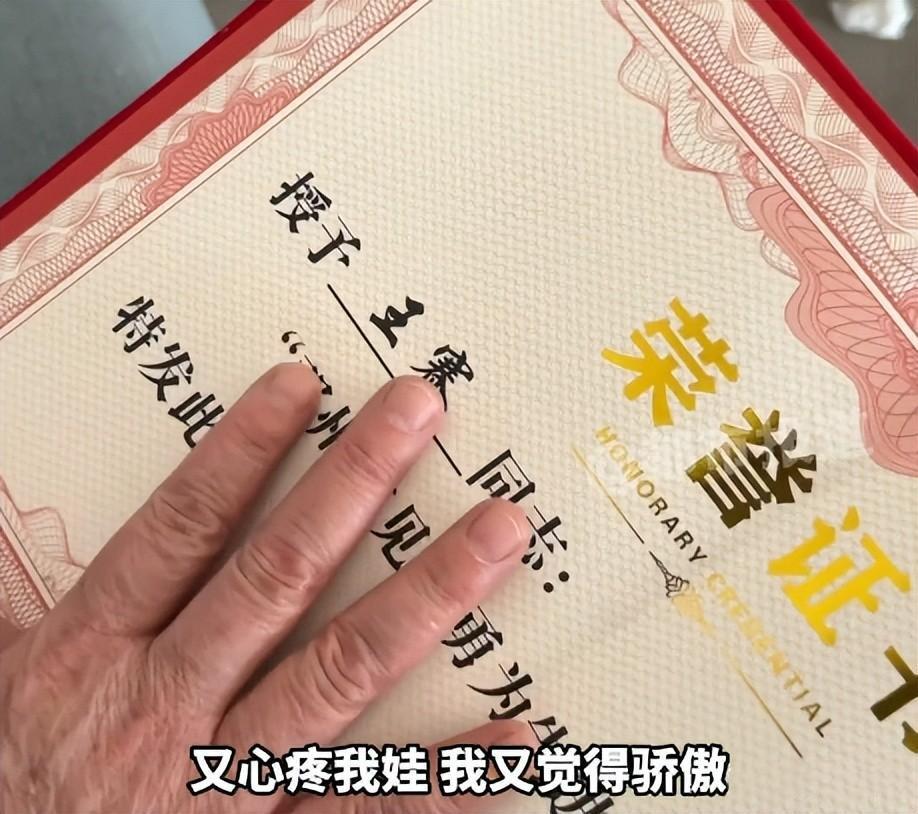 荣誉证
HONORARY CREDENTIAL
授予 王寨 同志：
州 见 勇为先进
特发此
又心疼我娃 我又觉得骄傲